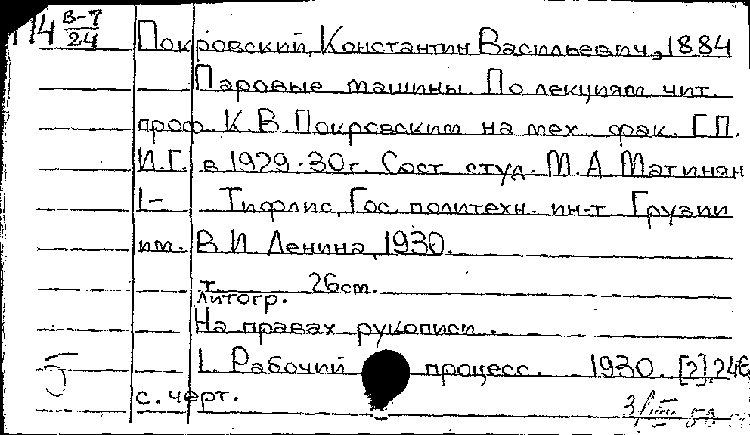 П4 В-7/24 Покровский, Константин Васильевич, 1884
Паровые машины. По лекциям чит.
проф. К.В. Покровским на мех. фак. Г.П.
И.Г. в 1929-30г. Сост. студ. М.А Матинян
1- Тифлис, Гос. политехн. ин-т Грузии
им. В.И Ленина, 1930.
т. 26см.
литогр.
На правах рукописи.
1. Рабочий процесс. 1930. [2], 246
с. черт.
5
3/III